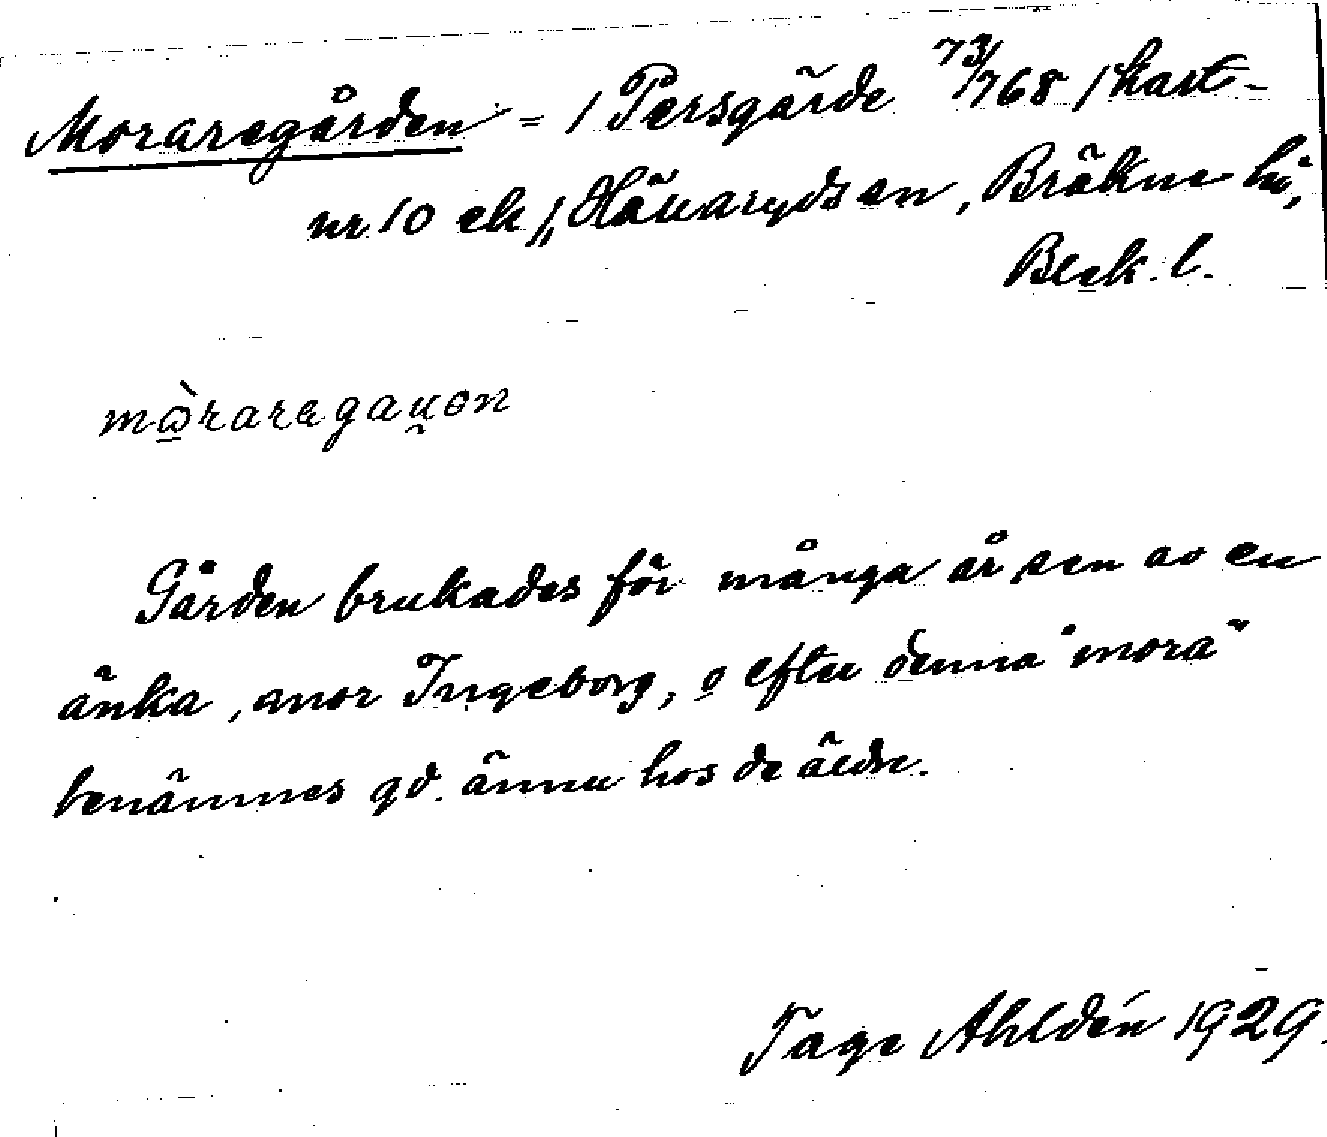 Moraregården = 1 Persgärde 73/768 /kart-
nr 10 ek//, Hällaryds sn, Bräkne hd,
Blek. l.
mòraregaꭒen
Gården brukades för många år sen av en
änka, mor Ingeborg, o efter denna "mora"
benämnes gd. ännu hos de äldre.
Tage Ahldén 1929.